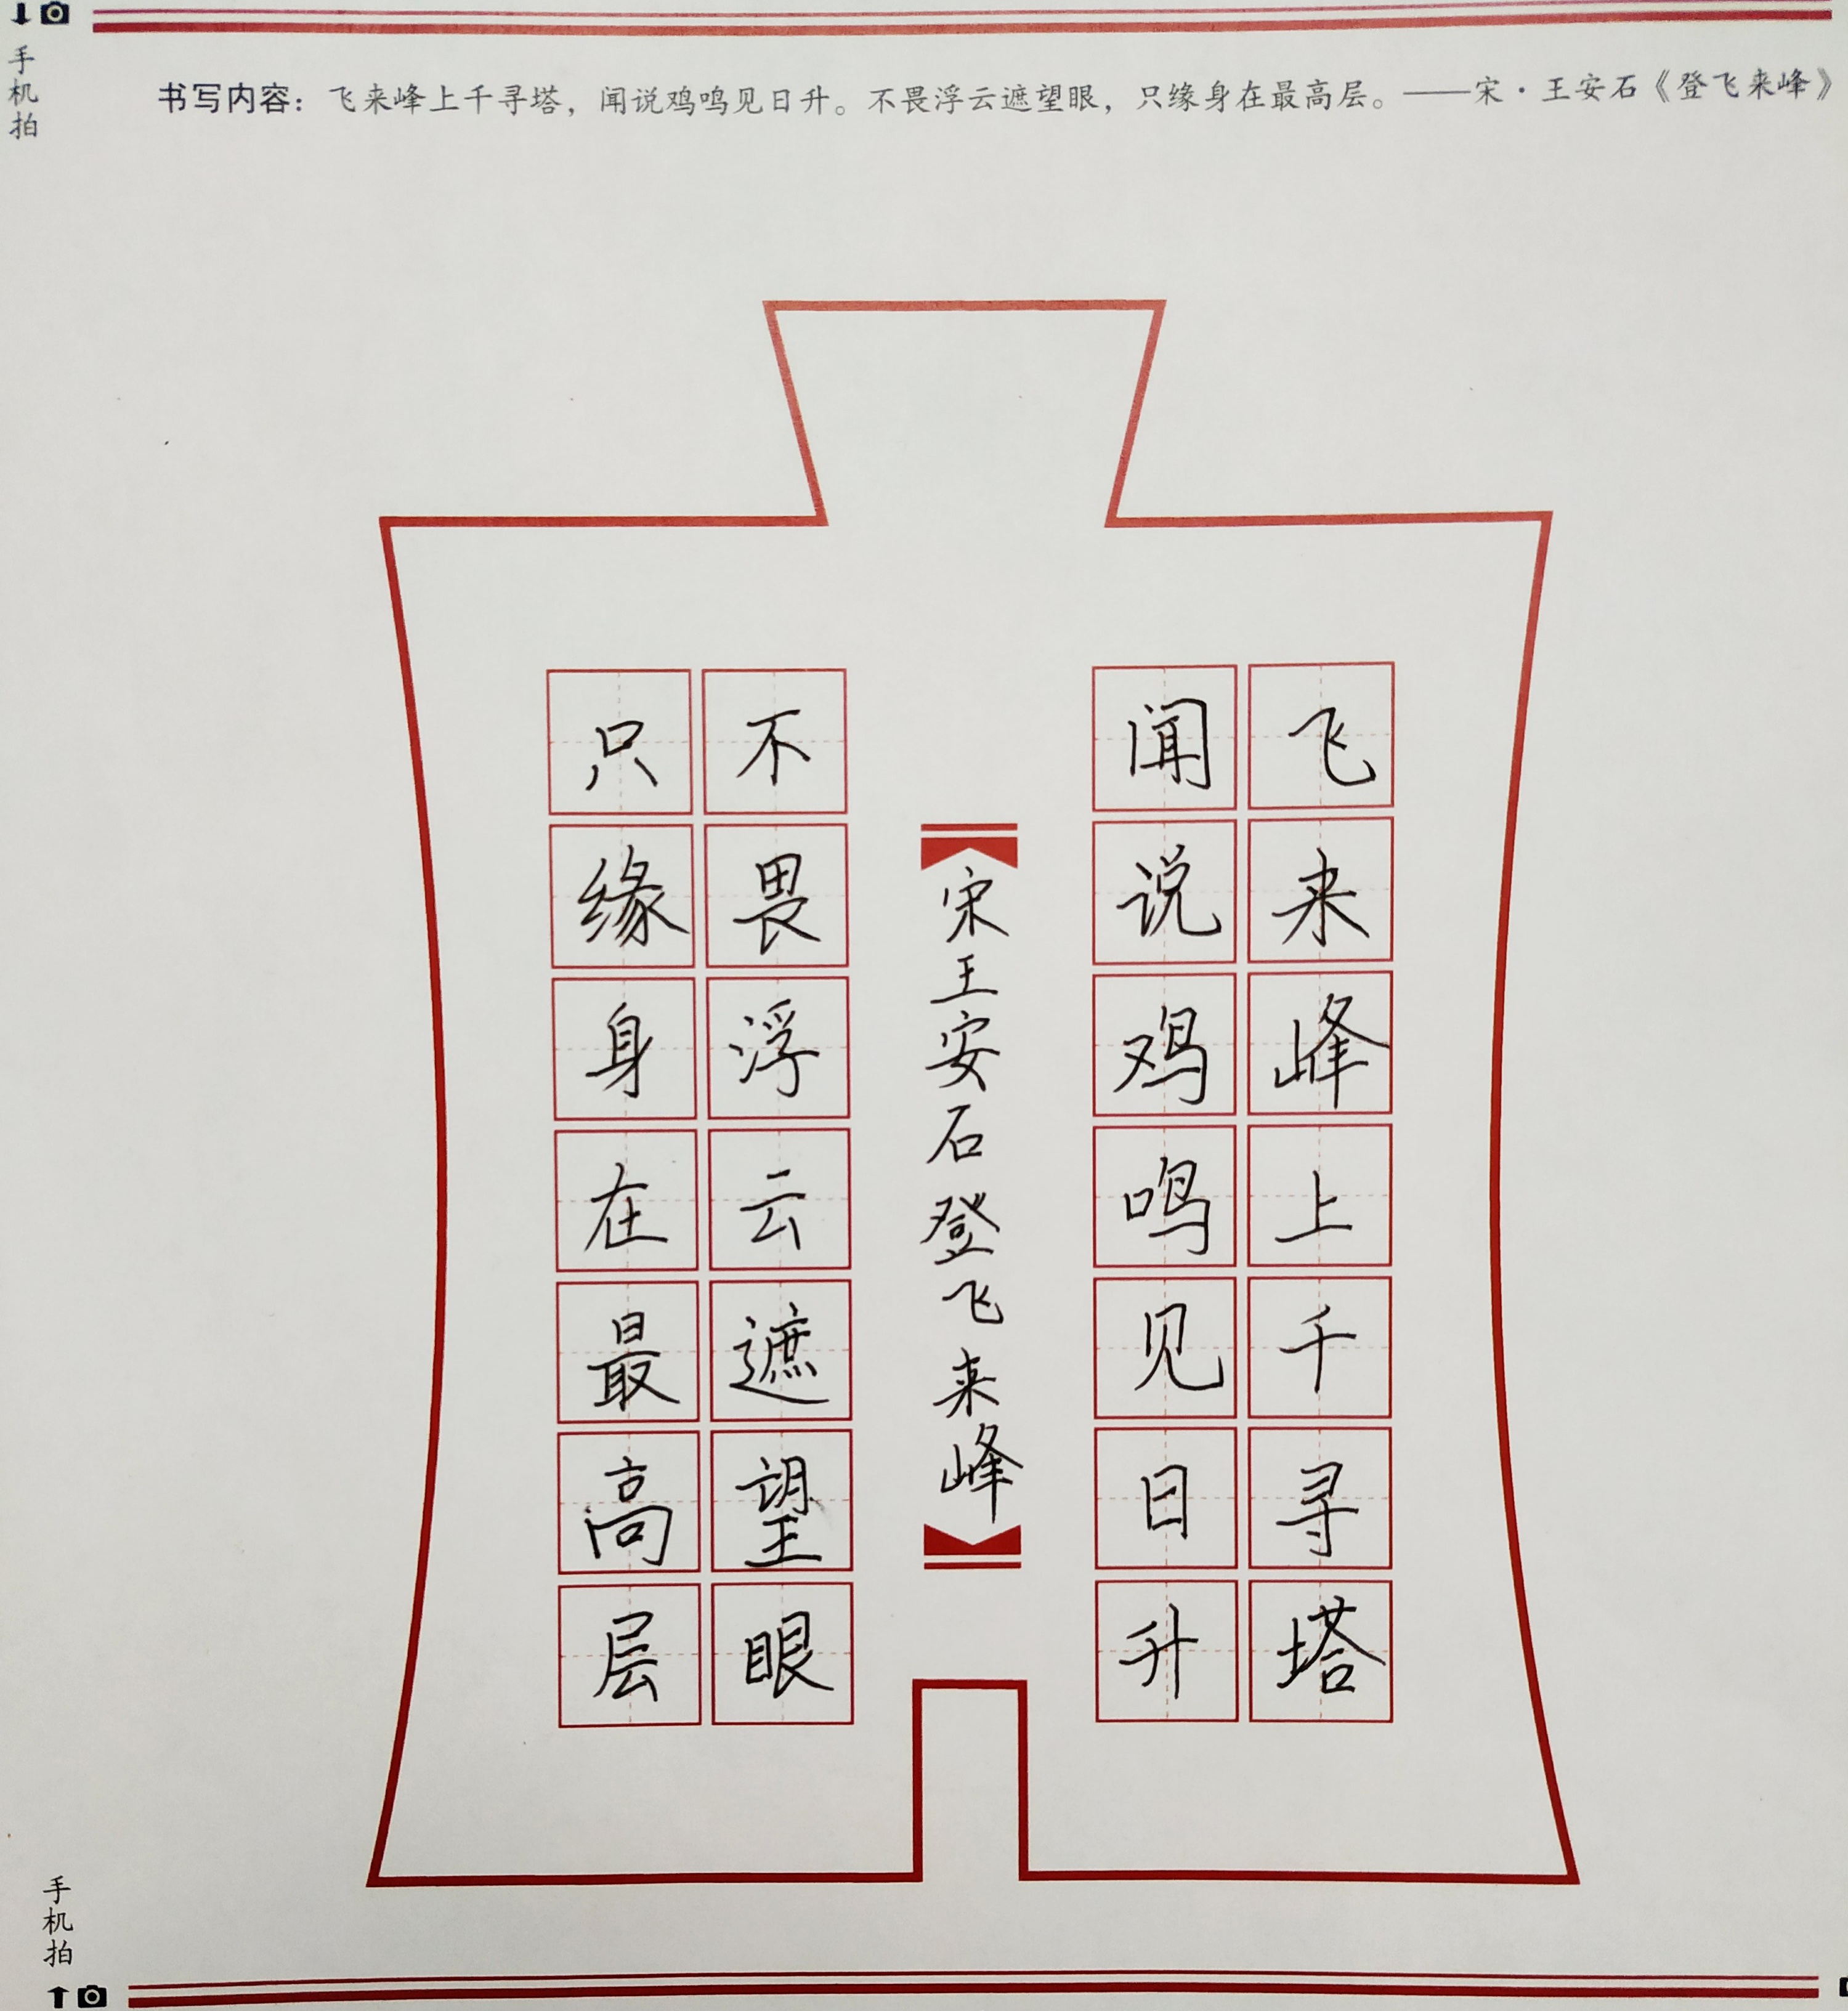 手机拍
书写内容：飞来峰上千寻塔，闻说鸡鸣见日升。不畏浮云遮望眼，只缘身在最高层。——宋·王安石《登飞来峰》
飞来峰上千寻塔
闻说鸡鸣见日升
宋王安石登飞来峰
不畏浮云遮望眼
只缘身在最高层
手机拍